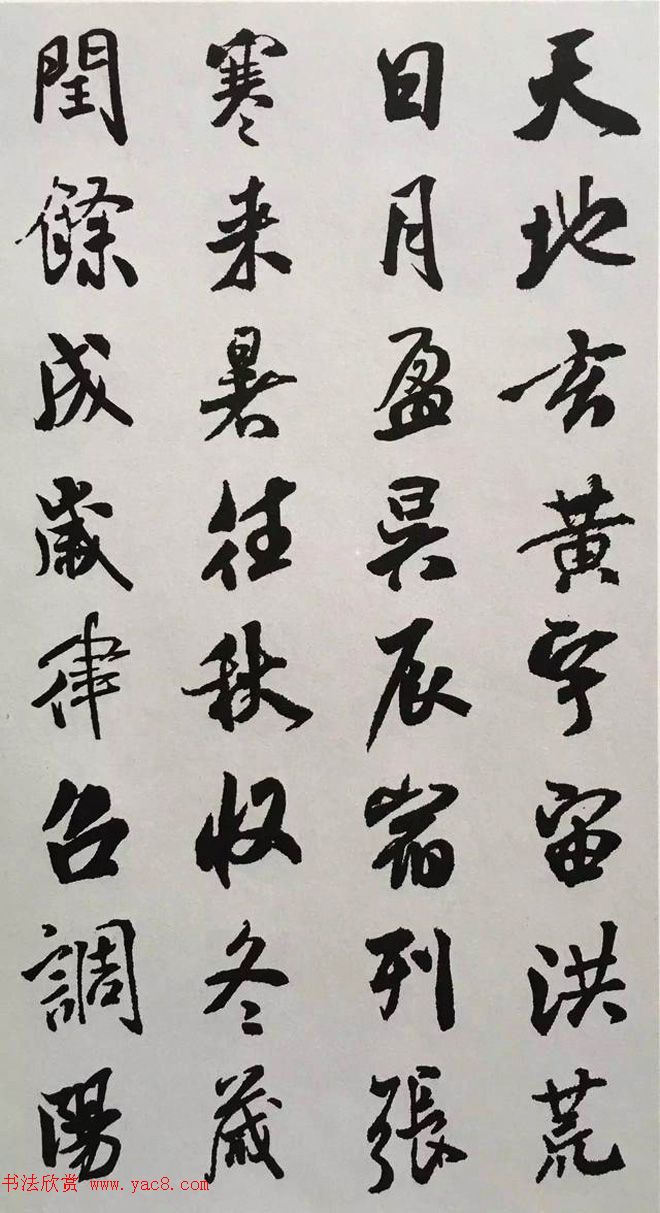 天地玄黃宇宙洪荒
日月盈昃辰宿列張
寒来暑往秋收冬蔵
閏餘成歲律召調陽
书法欣赏 www.yac8.com